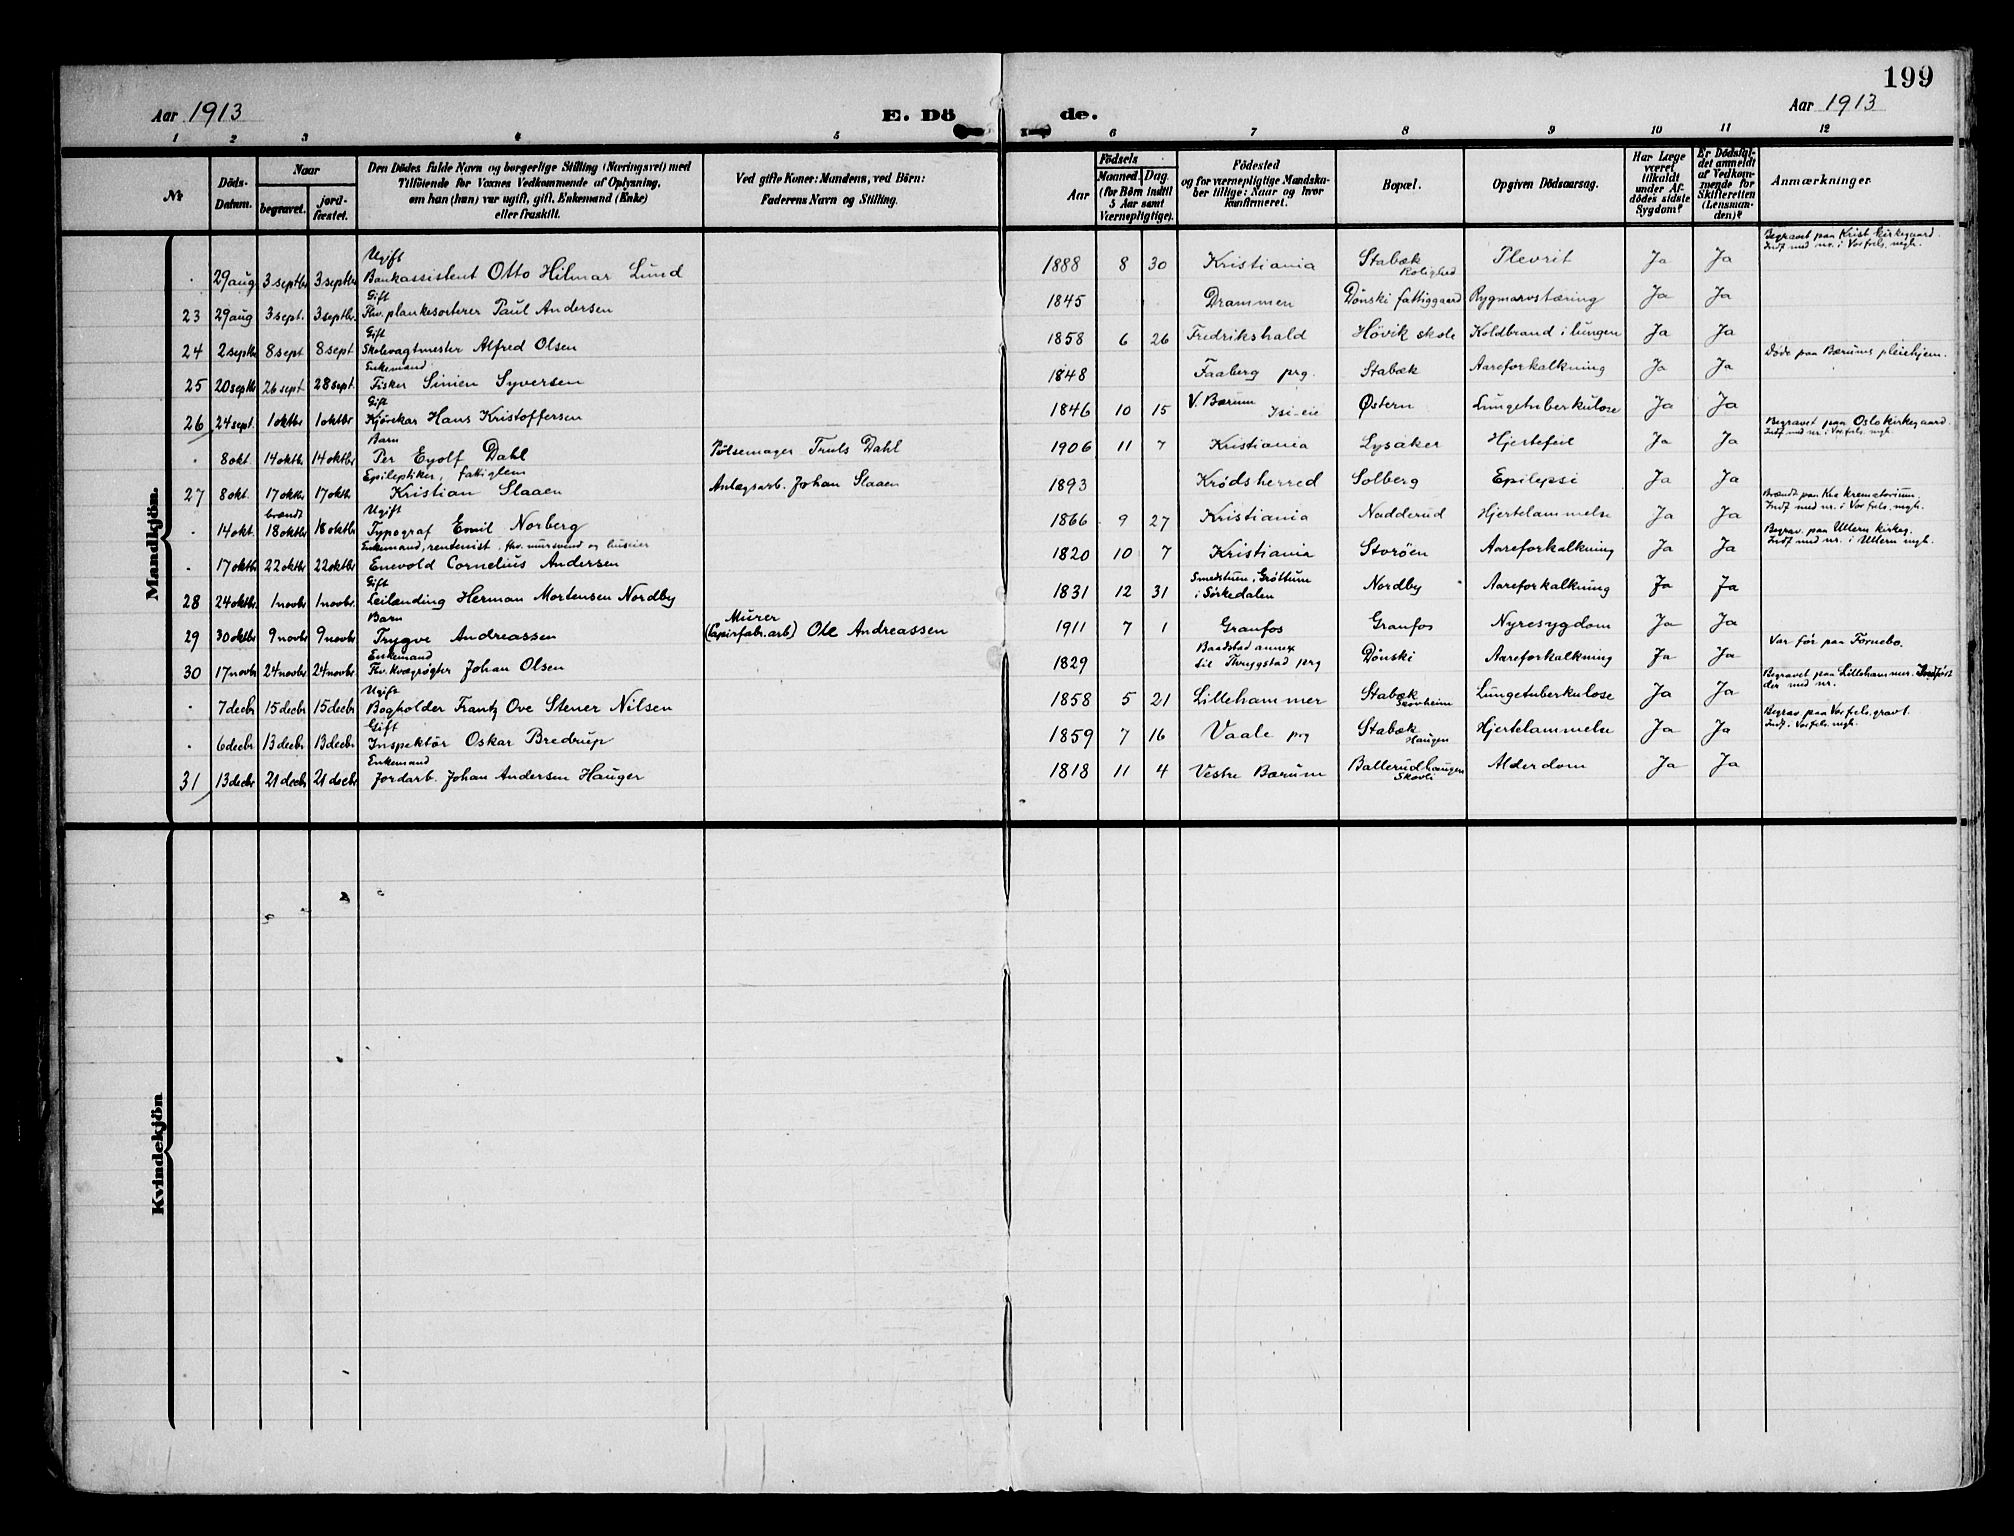 199
Aar 1913 E. Dö de. Aar 1913
1 2 3 4 5 6 7 8 9 10 11 12
№ Döds-Datum. Naar begravet. jordfæstet. Den Dödes fulde Navn og borgerlige Stilling (Næringsvei) med Tilföiende for Voxnes Vedkommende af Oplysning, om han (hun) var ugift, gift, Enkemand (Enke) eller fraskilt. Ved gifte Koner: Mandens, ved Börn: Faderens Navn og Stilling. Födsels Aar Maaned. Dag. (for Börn indtil 5 Aar samt Værnepligtige). Födested og for værnepligtige Mandskaber tillige: Naar og hvor kunfirmeret. Bopæl. Opgiven Dödsaarsag. Har Læge været tilkaldt under Afdödes sidste Sygdom? Er Dödsfaldet anmeldt af Vedkommende for Skifteretten (Lensmanden)? Anmærkninger.
Mandkjön.
. 29 aug 3 septbr 3 septbr Ugift Bankassistent Otto Hilmar Lund 1888 8 30 Kristiania Stabæk Rolighed Plevrit Ja Ja Begravet paa Krist kirkegaard. Indf med nr. i Vor frels. mgh.
23 29 aug 3 sept. 3 septbr. Gift Fhv. plankesorterer Paul Andersen 1845 Drammen Dønski fattiggaard Rygmarvstæring Ja Ja
24 2 septbr 8 sept 8 sept. Gift Skolevagtmester Alfred Olsen 1858 6 26 Fredrikshald Høvik skole Koldbrand i lungen Ja Ja
25 20 septbr 26 sept. 28 sept. Enkemand Fisker Simen Syversen 1848 Faaberg prg. Stabæk Aareforkalkning Ja Ja Døde paa Bærums pleiehjem.
26 24 sept. 1 oktbr 1 oktbr Gift Kjørekar Hans Kristoffersen 1846 10 15 V. Bærum Isi-eie Østern Lungetuberkulose Ja Ja
. 8 okt. 14 oktbr 14 oktbr Barn Per Eyolf Dahl Pølsemager Truls Dahl 1906 11 7 Kristiania Lysaker Hjertefeil Ja Ja Begravet paa Oslo kirkegaard. Indf med nr. i Vor frels. mgh.
27 8 okt. 17 oktbr 17 oktbr Epileptiker, fattiglem Kristian Slaaen Anlægsarb. Johan Slaaen 1893 Krødsherred Solberg Epilepsi Ja Ja
. 14 okt. brændt 18 oktbr 18 oktbr Ugift Typograf Emil Norberg 1866 9 27 Kristiania Nadderud Hjertelammelse Ja Ja Brændt paa Kra krematorium, Indf med nr. i Vor frels. mgh.
. 17 oktbr 22 oktbr 22 oktbr Enkemand, rentenist, fhv. mursvend og huseier Enevold Cornelius Andersen 1820 10 7 Kristiania Storøen Aareforkalkning Ja Ja Begrav. paa Ullern kirkeg. Indf med nr. i Ullern mgh.
28 24 oktbr 1 novbr 1 novbr Gift Leilænding Herman Mortensen Nordby 1831 12 31 Smedstuen, Grøttum i Sørkedalen Nordby Aareforkalkning Ja Ja
29 30 oktbr 9 novbr 9 novbr Barn Trygve Andreassen Murer (Papirfabr.arb) Ole Andreassen 1911 7 1 Granfos Granfos Nyresygdom Ja Ja
30 17 novbr 24 novbr 24 novbr Enkemand Fhv. kvægrøgter Johan Olsen 1829 Baadstad annex til Thrygstad prg Dønski Aareforkalkning Ja Ja Var før paa Fornebo.
. 7 decbr 15 decbr 15 decbr Ugift Bogholder Frantz Ove Stener Nilsen 1858 5 21 Lillehammer Stabæk Skovheim Lungetuberkulose Ja Ja Begravet paa Lillehammer. Indført der med nr.
. 6 decbr 13 decbr 13 decbr Gift Inspektør Oskar Bredrup 1859 7 16 Vaale prg Stabæk Haugen Hjertelammelse Ja Ja Begrav paa Vor frels. gravl. Indf. Vor frels. mgh.
31 13 decbr 21 decbr 21 decbr Enkemand Jordarb. Johan Andersen Hauger 1818 11 4 Vestre Bærum Ballerudhaugen Skovli Alderdom Ja Ja
Kvindekjön